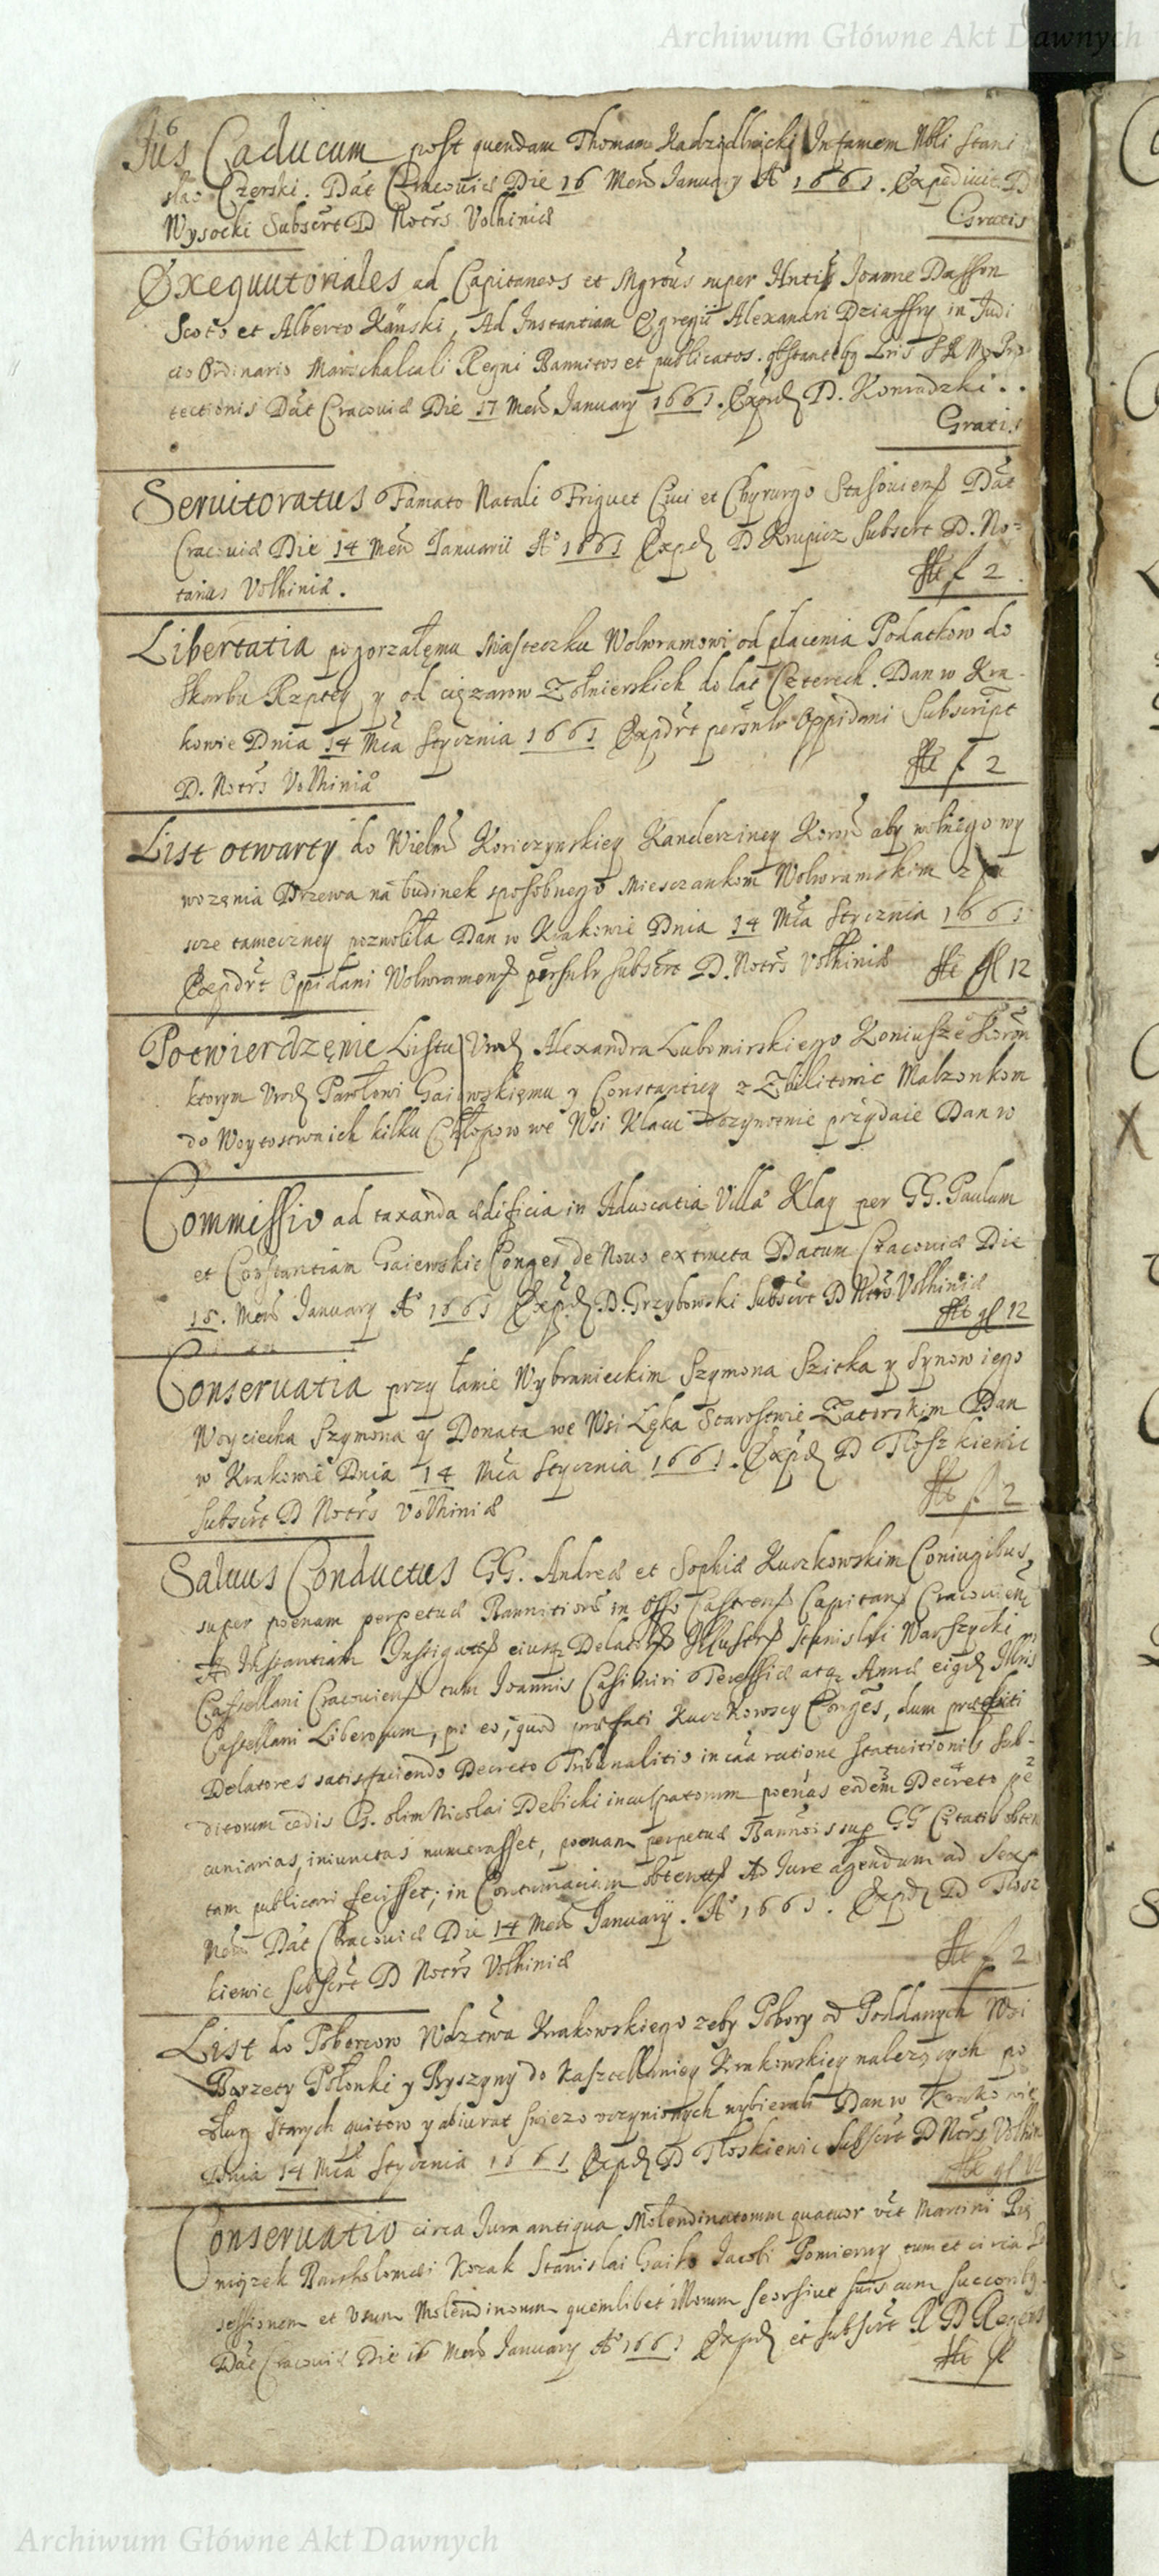 Archiwum Główne Akt Dawnych
Jus Caducum post quendam Thomam Infamem Nbli Stani
slao Czerski. Dat Cracoviæ Die 16 Mens January A° 1661. Expedivit D
Wysocki Subscrt D Notrs Volhiniæ Gratis
Exequutoriales ad Capitaneos et Mgrtus super Joanne Dasson
Scoto et Alberto Kanski, Ad Instantiam Egregii Alexandri Dziaffry in Judi
cio Ordinario Marschalcali Regni Bannitos et publicatos. Pro
tectionis Dat Cracoviæ Die 17 Mens January 1661. Expd D. Konradzki.
Gratis
Servitoratus Famato Natali Friguet Civi et Chyrurgo Dat
Cracoviæ Die 14 Mens Januarii A° 1661 Expd D Krupicz Subscrt D. No=
tarius Volhiniæ. f 2
Libertatia pogorzałęmu Miasteczku Wolwramowi od płacenia Podatkow do
Skarbu Rzptey y od cięzarow Zołnierskich do lat Czterech. Dan w Kra-
kowie Dnia 14 Mca Stycznia 1661 Expdrt persnlr Oppidani Subscript
D. Notrs Volhiniæ f 2
List otwarty do Wielm Koniczynskiey Kanclerziney Koron aby wolnego wy
wozęnia Drzewa na budinek sposobnego Miesczankom Wolwramskim z
scze tameczney pozwoliła Dan w Krakowie Dnia 14 Mca Stycznia 1661
Expdrt Oppidani Wolwramens persnlr subscrt D. Notrs Volhiniæ gl 12
Potwierdzęnie Listu Urod Alexandra Lubomirskiego Koniusze Koron
ktorym Urod Pawłowi Gaiowskięmu y Constantiey z Zbilitowic Małzonkom
do Woytostwa ich kilku Chłopow we Wsi Klaeu przydaie Dan w
Commissio ad taxanda ædificia in Advocatia Villæ Klay per GG. Paulum
et Constantiam Gaiewskie Conges de Novo extructa Datum Cracoviæ Die
15. Mens January A° 1661 Expd D. Grzybowski Subscrt D Ntrs Volhiniæ
gl 12
Conservatia przy łanie Wybranieckim Szymona Szicka y Synow iego
Woyciecha Szymona y Donata we Wsi Lęka Starostwie Zatorskim Dan
w Krakowie Dnia 14 Mca Stycznia 1661. Expd D Tloszkiewic
Subscrt D Notrs Volhiniæ f 2
Salvus Conductus GG. Andreæ et Sophiæ Kuczkowskim Coniugibus
super poenam perpetuæ Bannitionis in Offo Castrens Capitans Cracoviens
Ad Instantiam Instigatts eiusq Delators Illustrs Stanislai Warszycki
Castellani Cracoviens tum Joannis Casimiri Teressiæ atq Annæ eigd Illris
Castellani Liberorum, pro eo, quod præfati Kuczkowscy Conges, dum
Delatores satisfaciendo Decreto Tribunalitio in caa ratione statuitionis Sub-
ditorum cædis G. olim Nicolai Debicki inculpatorum poenas eodem Decreto pe
cuniarias, iniunctas numerasset, poenam perpetuæ Bannois sup GG Citatis obten
tam publicari fecisset; in Contumaciam obtentts Ad Jure agendum ad Sex
Mens Dat Cracoviæ Die 14 Mens January. A° 1661. Expd D Tlosz
kiewic subscrt D Notrs Volhiniæ f 2
List do Poborcow Wdztwa Krakowskiego zeby Pobory od Poddanych Wsi
Barzecy Połonki y Ryszyny do Kasztellaniey Krakowskiey nalezących po
dług starych quitow y abiurat swiezo uczynionych wybierali Dan w Krakowie
Dnia 14 Mca Stycznia 1661 Expd D Tloskiewic Subscrt D Ntrs Volhin
gl 12
Conservatio circa Jura antiqua Molendinatorum quatuor vct Martini
Bartholomæi Kozak Stanislai Gaiko Jacobi Pomierny tum et circa
sessionem et Usum Molendinorum quemlibet illorum seorsive suis cum succorib
Dat Cracoviæ Die 16 Mens January A° 1661 Expd et subscrt R D Regens
Archiwum Główne Akt Dawnych